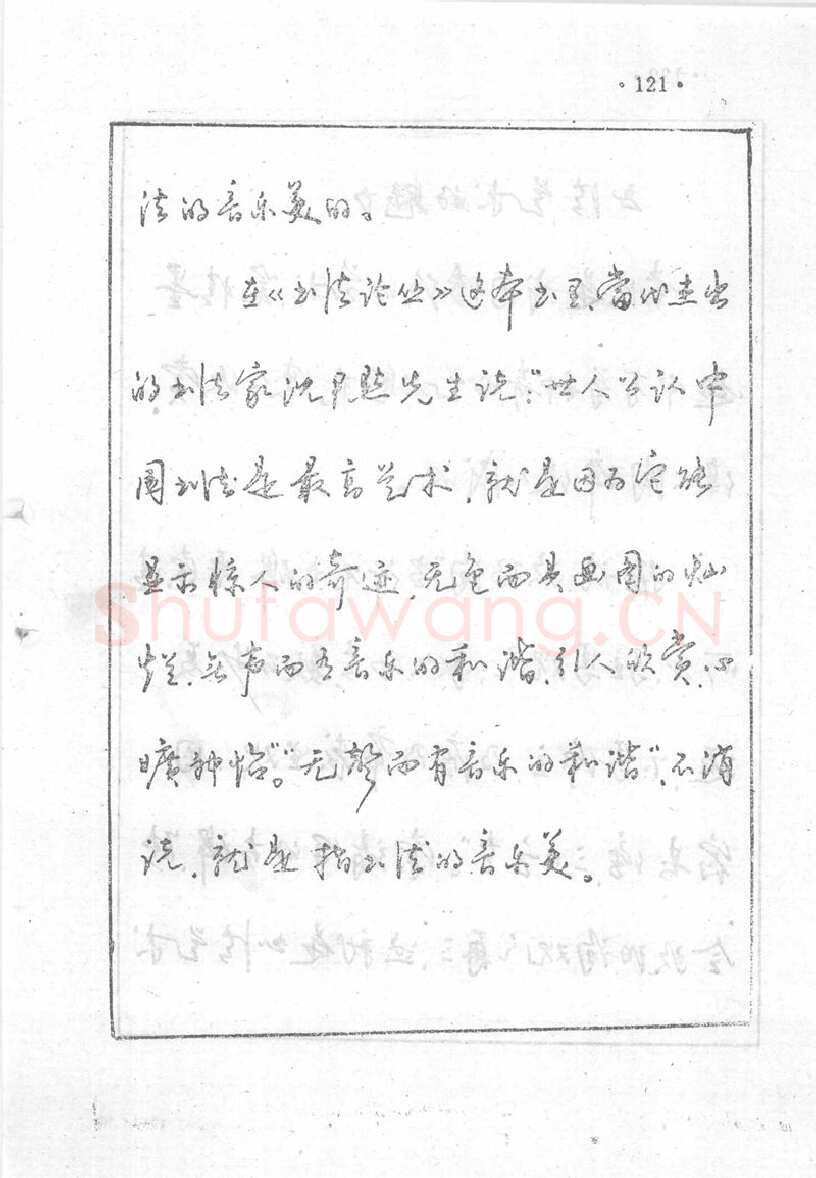 ·121·
法的音乐美的。
在《书法论丛》这本书里,當代杰出
的书法家沈尹默先生说:“世人公认中
国书法是最高艺术,就是因为它能
显示惊人的奇迹,无色而具画图的灿
烂,无声而有音乐的和谐,引人欣赏,心
曠神怡”。“无聲而有音乐的和谐”,不消
说,就是指书法的音乐美。
Shufawang.CN